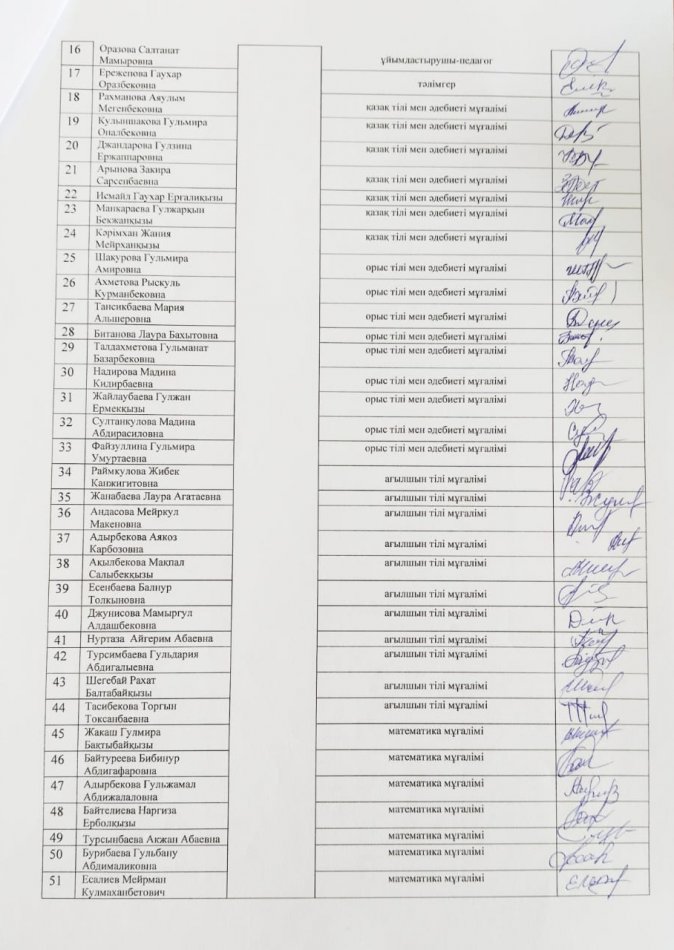 16 Оразова Салтанат
Мамыровна ұйымдастырушы-педагог
17 Ереженова Гаухар
Оразбековна тәлімгер
18 Рахманова Аяулым
Мегенбековна қазақ тілі мен әдебиеті мұғалімі
19 Кулыншакова Гульмира
Оналбековна қазақ тілі мен әдебиеті мұғалімі
20 Джандарова Гулзина
Ержаппаровна қазақ тілі мен әдебиеті мұғалімі
21 Арынова Закира
Сарсенбаевна қазақ тілі мен әдебиеті мұғалімі
22 Исмайл Гаухар Ергалиқызы қазақ тілі мен әдебиеті мұғалімі
23 Манкараева Гулжарқын
Бекжанқызы қазақ тілі мен әдебиеті мұғалімі
24 Кәрімхан Жания
Мейрханқызы қазақ тілі мен әдебиеті мұғалімі
25 Шакурова Гульмира
Амировна орыс тілі мен әдебиеті мұғалімі
26 Ахметова Рыскуль
Курманбековна орыс тілі мен әдебиеті мұғалімі
27 Тансикбаева Мария
Альшеровна орыс тілі мен әдебиеті мұғалімі
28 Битанова Лаура Бахытовна орыс тілі мен әдебиеті мұғалімі
29 Талдахметова Гульманат
Базарбековна орыс тілі мен әдебиеті мұғалімі
30 Надирова Мадина
Кидирбаевна орыс тілі мен әдебиеті мұғалімі
31 Жайлаубаева Гулжан
Ермекқызы орыс тілі мен әдебиеті мұғалімі
32 Султанкулова Мадина
Абдирасиловна орыс тілі мен әдебиеті мұғалімі
33 Файзуллина Гульмира
Умуртаевна орыс тілі мен әдебиеті мұғалімі
34 Раймкулова Жибек
Канжигитовна ағылшын тілі мұғалімі
35 Жанабаева Лаура Агатаевна ағылшын тілі мұғалімі
36 Андасова Мейркул
Макеновна ағылшын тілі мұғалімі
37 Адырбекова Аякоз
Карбозовна ағылшын тілі мұғалімі
38 Ақылбекова Мақпал
Салыбекқызы ағылшын тілі мұғалімі
39 Есенбаева Балнур
Толкыновна ағылшын тілі мұғалімі
40 Джунисова Мамыргул
Алдашбековна ағылшын тілі мұғалімі
41 Нуртаза Айгерим Абаевна ағылшын тілі мұғалімі
42 Турсимбаева Гульдария
Абдигалыевна ағылшын тілі мұғалімі
43 Шегебай Рахат
Балтабайқызы ағылшын тілі мұғалімі
44 Тасибекова Торгын
Токсанбаевна ағылшын тілі мұғалімі
45 Жакаш Гулмира
Бактыбайқызы математика мұғалімі
46 Байтуреева Бибинур
Абдигафаровна математика мұғалімі
47 Адырбекова Гульжамал
Абдижалаловна математика мұғалімі
48 Байтелиева Наргиза
Ерболкызы математика мұғалімі
49 Турсынбаева Акжан Абаевна математика мұғалімі
50 Бурибаева Гульбану
Абдималиковна математика мұғалімі
51 Есалиев Мейрман
Кулмаханбетович математика мұғалімі